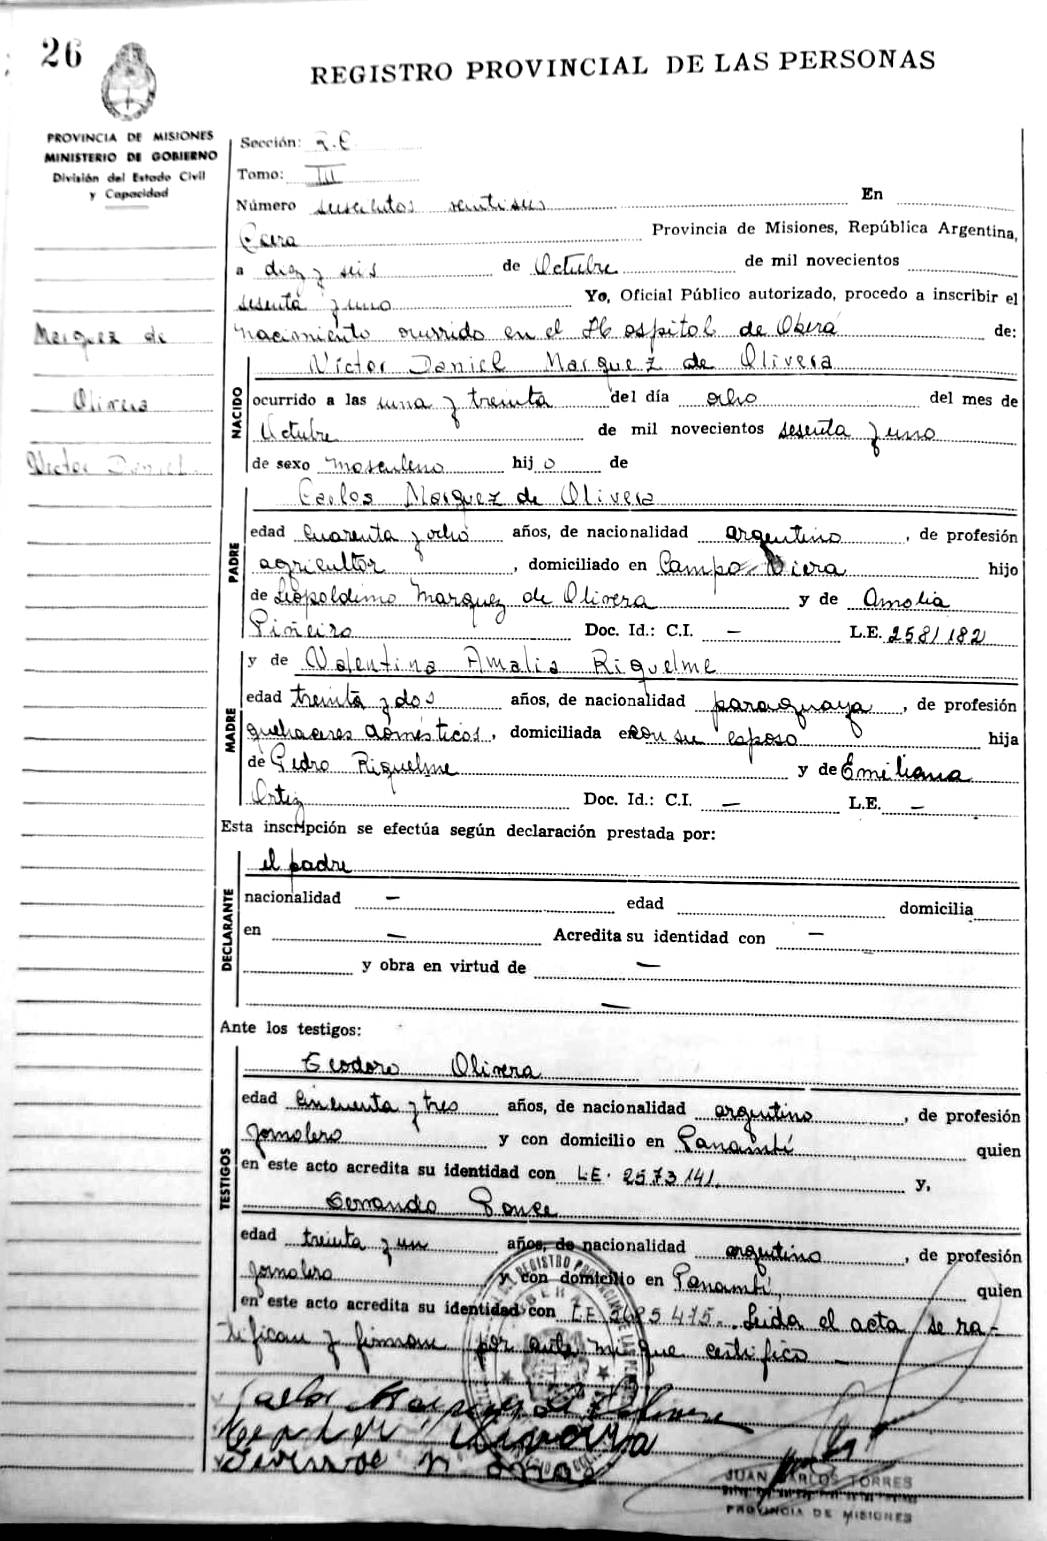 26
REGISTRO PROVINCIAL DE LAS PERSONAS
PROVINCIA DE MISIONES
MINISTERIO DE GOBIERNO
División del Estado Civil
y Capacidad
Sección:
Tomo: III
Número seiscientos veintiseis En
Provincia de Misiones, República Argentina,
a diez y seis de Octubre de mil novecientos
sesenta y uno Yo, Oficial Público autorizado, procedo a inscribir el
nacimiento ocurrido en el Hospital de Oberá de:
Marquez de
Olivera
Victor Daniel
NACIDO
Victor Daniel Marquez de Olivera
ocurrido a las una y treinta del día ocho del mes de
Octubre de mil novecientos sesenta y uno
de sexo masculino hijo de
PADRE
Carlos Marquez de Olivera
edad cuarenta y ocho años, de nacionalidad argentino, de profesión
agricultor, domiciliado en Campo Viera hijo
de Leopoldino Marquez de Olivera y de Amalia
Piñeiro Doc. Id.: C.I. — L.E. 2581182
MADRE
y de Valentina Amalia Riquelme
edad treinta y dos años, de nacionalidad paraguaya, de profesión
quehaceres domésticos, domiciliada en con su esposo hija
de Pedro Riquelme y de Emiliana
Ortiz Doc. Id.: C.I. — L.E. —
Esta inscripción se efectúa según declaración prestada por:
DECLARANTE
el padre
nacionalidad — edad domicilia
en — Acredita su identidad con —
y obra en virtud de —
—
Ante los testigos:
TESTIGOS
Teodoro Olivera
edad cincuenta y tres años, de nacionalidad argentino, de profesión
jornalero y con domicilio en Panambí quien
en este acto acredita su identidad con L.E. 2573141. y,
Ponce
edad treinta y un años, de nacionalidad argentino, de profesión
jornalero y con domicilio en Panambí, quien
en este acto acredita su identidad con L.E. Leida el acta, se ra-
tifican y firman por ante mi que certifico —
JUAN CARLOS TORRES
PROVINCIA DE MISIONES